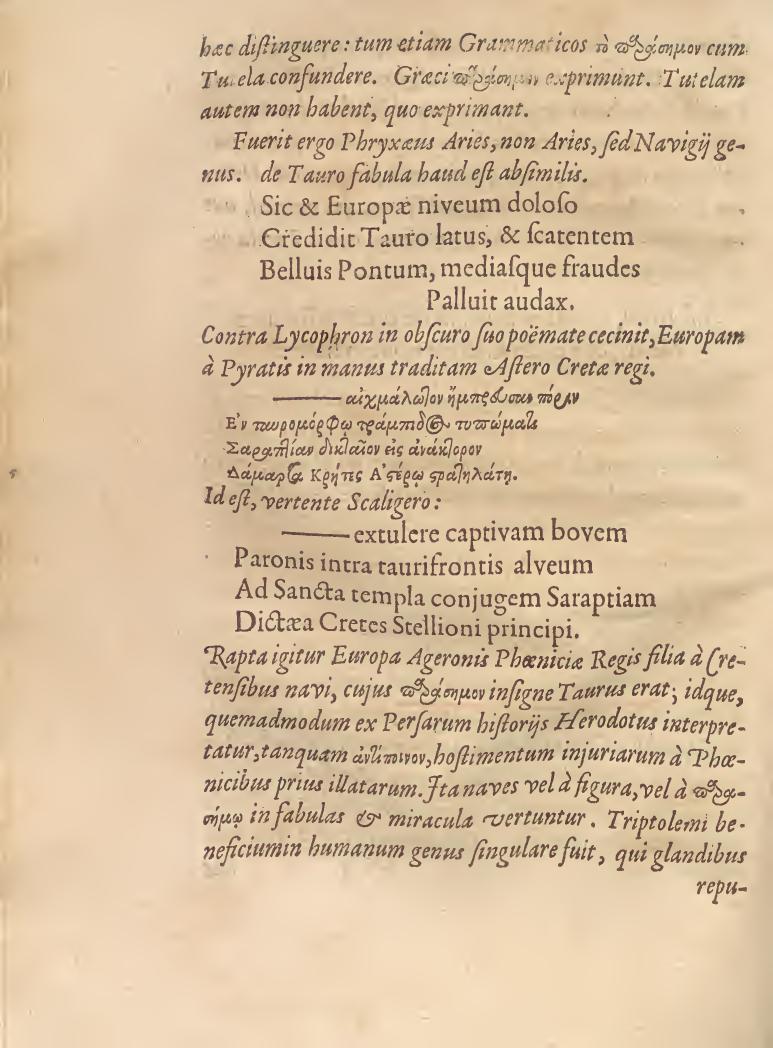 hæc diſtinguere: tum etiam Grammaticos τὸ παράσημον cum
Tutela confundere. Græci παράσημον exprimunt. Tutelam
autem non habent, quo exprimant.
Fuerit ergo Phryxæus Aries, non Aries, ſed Navigij ge-
nus. de Tauro fabula haud eſt abſimilis.
Sic & Europæ niveum doloſo
Credidit Tauro latus, & ſcatentem
Belluis Pontum, mediaſque fraudes
Palluit audax.
Contra Lycophron in obſcuro ſuo poëmate cecinit, Europam
à Pyratis in manus traditam Aſtero Cretæ regi.
— αἰχμάλωτον ἤμπρευσαν πόρτιν
Ἐν ταυρομόρφῳ τράμπιδος τυπώματι
Σαραπτίαν δικταῖον εἰς ἀνάκτορον
Δάμαρτα Κρήτης Ἀστέρῳ στρατηλάτῃ.
Id eſt, vertente Scaligero:
— extulere captivam bovem
Paronis intra taurifrontis alveum
Ad Sancta templa conjugem Saraptiam
Dictæa Cretes Stellioni principi.
Rapta igitur Europa Ageronis Phœniciæ Regis filia à Cre-
tenſibus navi, cujus παράσημον inſigne Taurus erat; idque,
quemadmodum ex Perſarum hiſtorijs Herodotus interpre-
tatur, tanquam ἀντίποινον, hoſtimentum injuriarum à Phœ-
nicibus prius illatarum. Ita naves vel à figura, vel à παρα-
σήμῳ in fabulas & miracula vertuntur. Triptolemi be-
neficium in humanum genus ſingulare fuit, qui glandibus
repu-